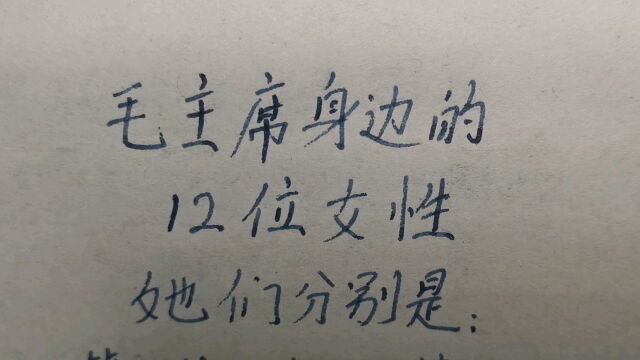 毛主席身边的
12位女性
她们分别是：